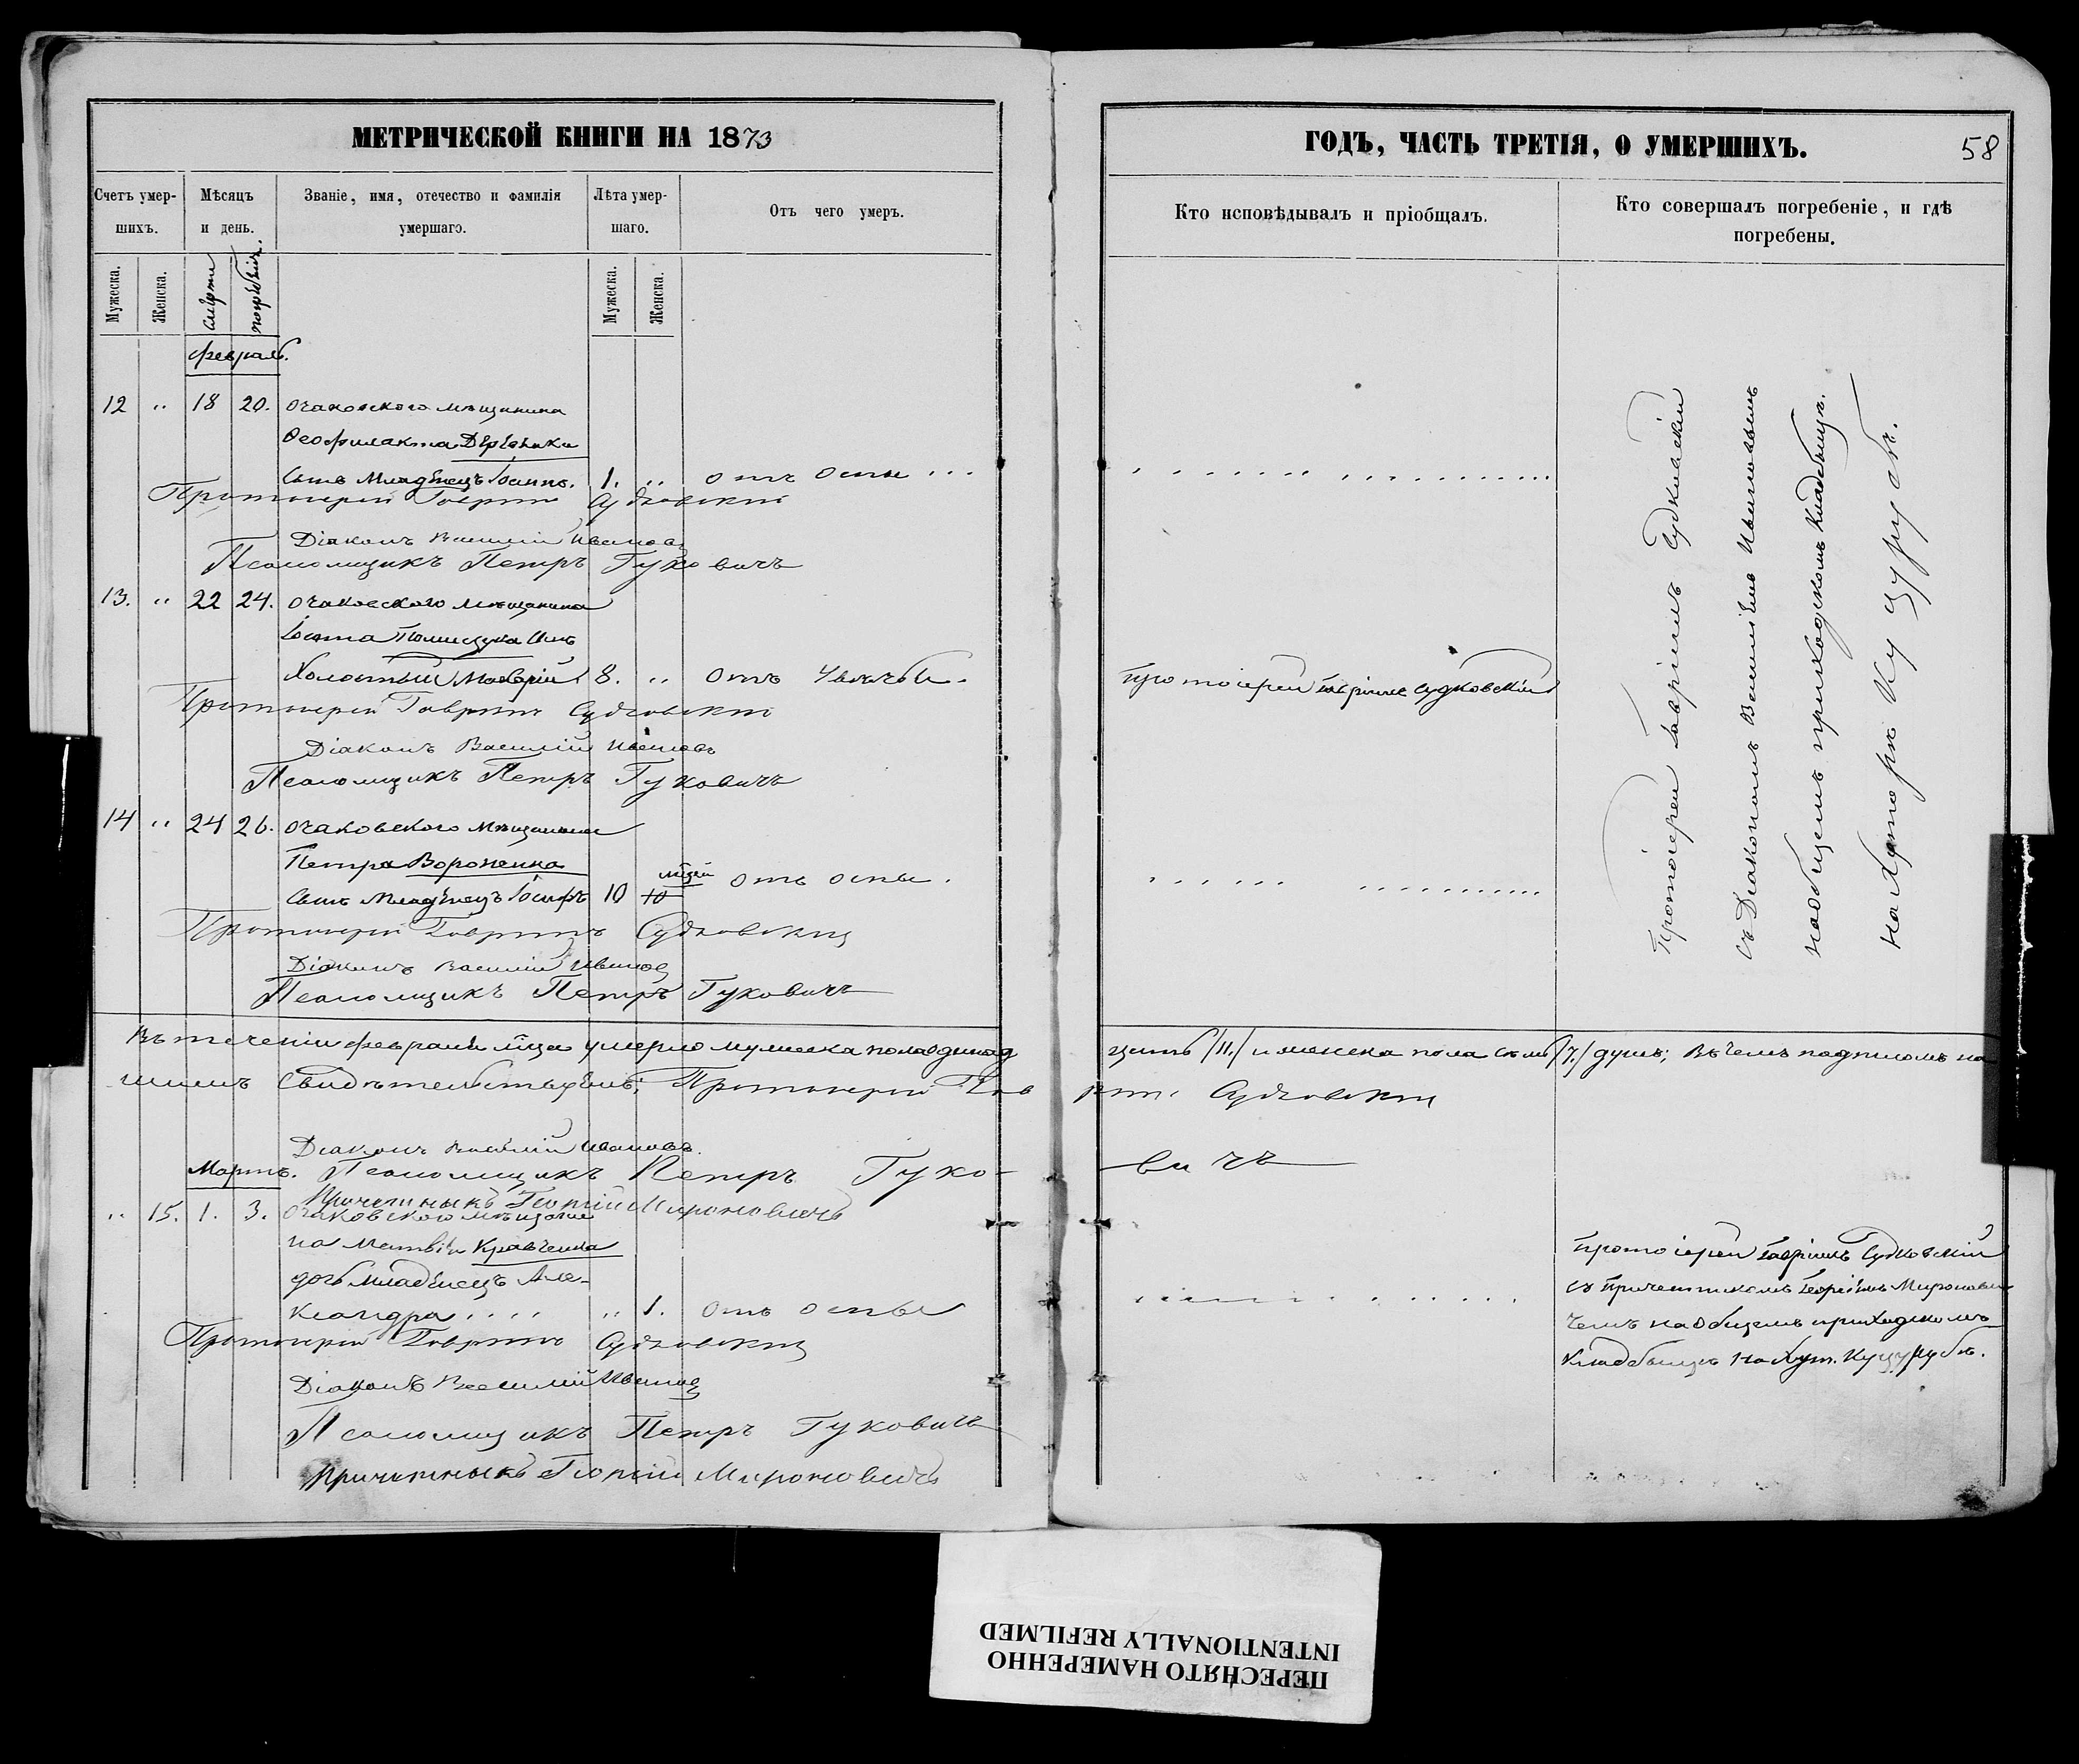 МЕТРИЧЕСКОЙ КНИГИ НА 1873
Счетъ умер-
шихъ.
Мѣсяцъ
и день.
Званіе, имя, отечество и фамилія
умершаго.
Лѣта умер-
шаго.
Отъ чего умеръ.
Мужеска.
Женска.
смерти
погребенія.
Мужеска.
Женска.
Февраль.
12 " 18 20. Очаковскаго мѣщанина
Ѳеофилакта
сынъ младенецъ Іоаннъ. 1. " отъ оспы ...
Протоіерей Гавріилъ Судковскій
Діаконъ Василій Ивановъ
Псаломщикъ Петръ Гуковичъ
13. " 22 24. Очаковскаго мѣщанина
сынъ
Холостый 8. " отъ
Протоіерей Гавріилъ Судковскій
Діаконъ Василій Ивановъ
Псаломщикъ Петръ Гуковичъ
14 " 24 26. Очаковскаго мѣщанина
Петра Вороненка
сынъ младенецъ Іосифъ 10 мѣсяц отъ оспы.
Протоіерей Гавріилъ Судковскій
Діаконъ Василій Ивановъ
Псаломщикъ Петръ Гуковичъ
Въ теченіи февраля м-ца умерло мужеска пола одинад
шемъ свидѣтельствуемъ; Протоіерей Гав
Діаконъ Василій Ивановъ.
Мартъ. Псаломщикъ Петръ Гуко-
Причетникъ Георгій Мироновичъ
" 15. 1. 3. Очаковскаго мѣщани
на Матвѣя Кравченка
дочь младенецъ Але-
ксандра .... " 1. отъ оспы
Протоіерей Гавріилъ Судковскій
Діаконъ Василій Ивановъ
Псаломщикъ Петръ Гуковичъ
Причетникъ Георгій Мироновичъ
ГОДЪ, ЧАСТЬ ТРЕТІЯ, О УМЕРШИХЪ.
58
Кто исповѣдывалъ и пріобщалъ.
Кто совершалъ погребеніе, и гдѣ
погребены.
Протоіерей Гавріилъ Судковскій
Протоіерей Гавріилъ Судковскій
съ Діакономъ Василіемъ Ивановымъ
на общемъ приходскомъ кладбищѣ.
на Хуторѣ Куцурубѣ.
цать /11./ и женска пола семь /7./ душъ; въ чемъ подписомъ на
ріилъ Судковскій
вичъ
Протоіерей Гавріилъ Судковскій
съ Причетникомъ Георгіемъ Миронови
чемъ на общемъ приходскомъ
кладбищѣ на Хут. Куцурубѣ.
ПЕРЕСНЯТО НАМЕРЕННО
INTENTIONALLY REFILMED